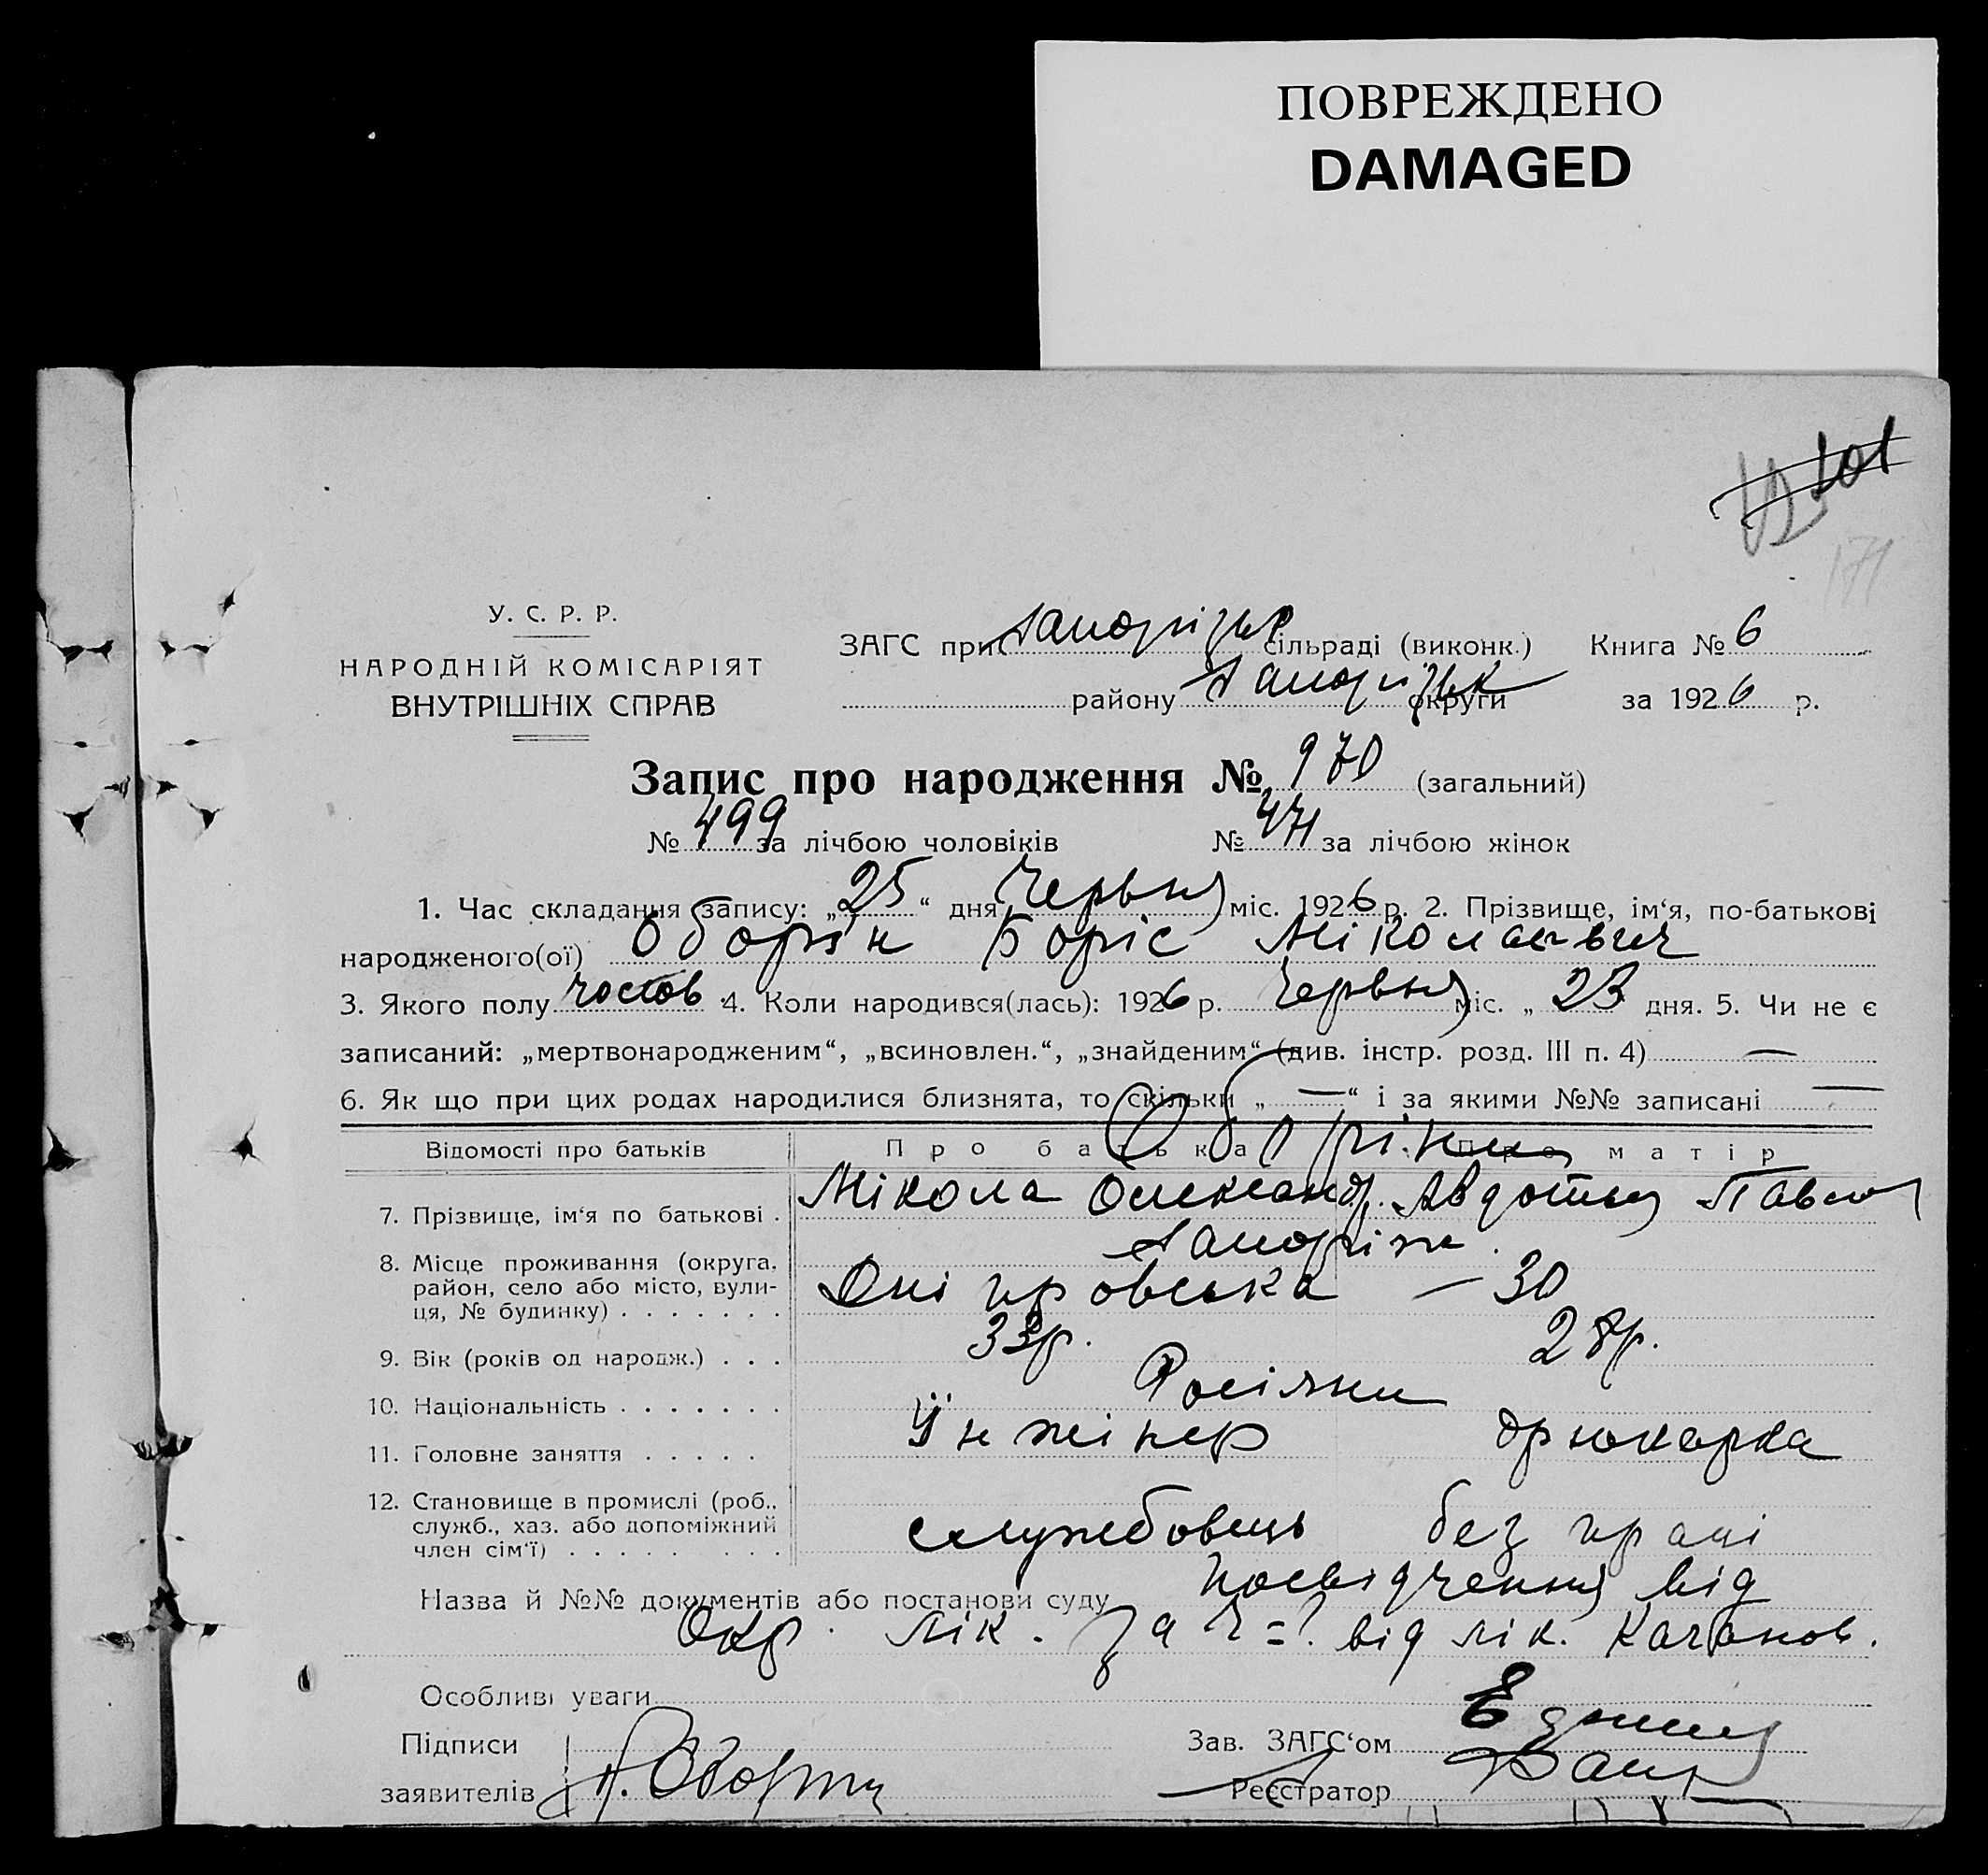 ПОВРЕЖДЕНО
DAMAGED
101
171
У. С. Р. Р.
НАРОДНІЙ КОМІСАРІЯТ
ВНУТРІШНІХ СПРАВ
ЗАГС при Запорізьк сільраді (виконк.) Книга № 6
району Запорізьк округи за 1926 р.
Запис про народження № 970 (загальний)
№ 499 за лічбою чоловіків № 471 за лічбою жінок
1. Час складання запису: „25“ дня Червня міс. 1926 р. 2. Прізвище, ім‘я, по-батькові
народженого(ої) Оборін Боріс Міколаевич
3. Якого полу чолов. 4. Коли народився(лась): 1926 р. Червня міс. „23 дня. 5. Чи не є
записаний: „мертвонародженим“, „всиновлен.“, „знайденим“ (див. інстр. розд. III п. 4) —
6. Як що при цих родах народилися близнята, то скільки „—“ і за якими №№ записані —
Відомості про батьків Про батька Про матір
Оборіни
7. Прізвище, ім‘я по батькові . Мікола Олександ. Авдотья Павл
8. Місце проживання (округа, район, село або місто, вулиця, № будинку) . . . . . . . Запоріж.
Дніпровська — 30
9. Вік (років од народж.) . . . 33р. 28р.
10. Національність . . . . . . . Росіяни
11. Головне заняття . . . . . Їнжінер друкарка
12. Становище в промислі (роб., служб., хаз. або допоміжний член сім‘ї) . . . . . . . . службовець без праці
Назва й №№ документів або постанови суду посвідчення від
Окр. лік. за Ч=? від лік. Качанов.
Особливі уваги
Підписи
заявителів Н. Оборин
Зав. ЗАГС‘ом
Реєстратор